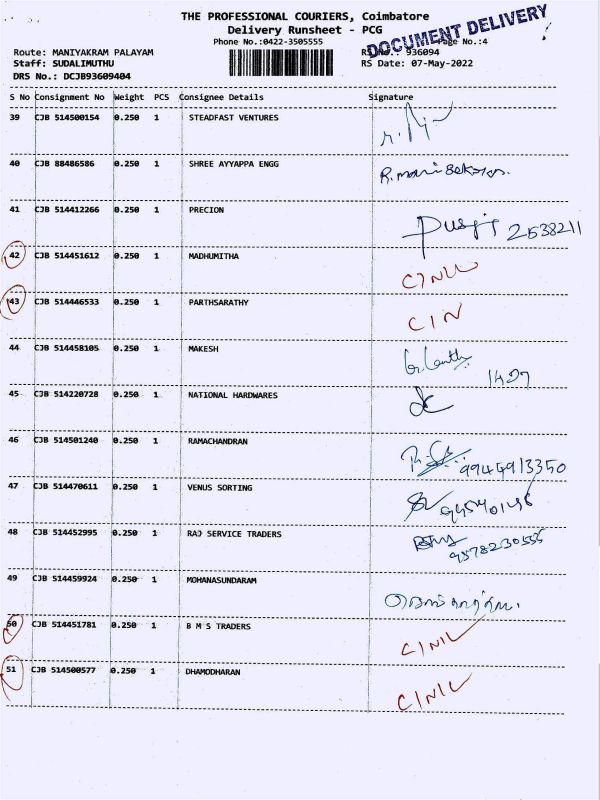 THE PROFESSIONAL COURIERS, Coimbatore
Delivery Runsheet - PCG
DOCUMENT DELIVERY
Phone No.:0422-3505555
Page No.:4
Route: MANIYAKRAM PALAYAM
RS No.: 936094
Staff: SUDALIMUTHU
RS Date: 07-May-2022
DRS No.: DCJB93609404
S No Consignment No Weight PCS Consignee Details Signature
39 CJB 514500154 0.250 1 STEADFAST VENTURES
40 CJB 88486586 0.250 1 SHREE AYYAPPA ENGG
41 CJB 514412266 0.250 1 PRECION 2538211
42 CJB 514451612 0.250 1 MADHUMITHA
43 CJB 514446533 0.250 1 PARTHSARATHY C/N
44 CJB 514458105 0.250 1 MAKESH
45 CJB 514220728 0.250 1 NATIONAL HARDWARES
46 CJB 514501240 0.250 1 RAMACHANDRAN 9944913350
47 CJB 514470611 0.250 1 VENUS SORTING
48 CJB 514452995 0.250 1 RAJ SERVICE TRADERS 9578230555
49 CJB 514459924 0.250 1 MOHANASUNDARAM
50 CJB 514451781 0.250 1 B M S TRADERS C/NIL
51 CJB 514500577 0.250 1 DHAMODHARAN C/NIL